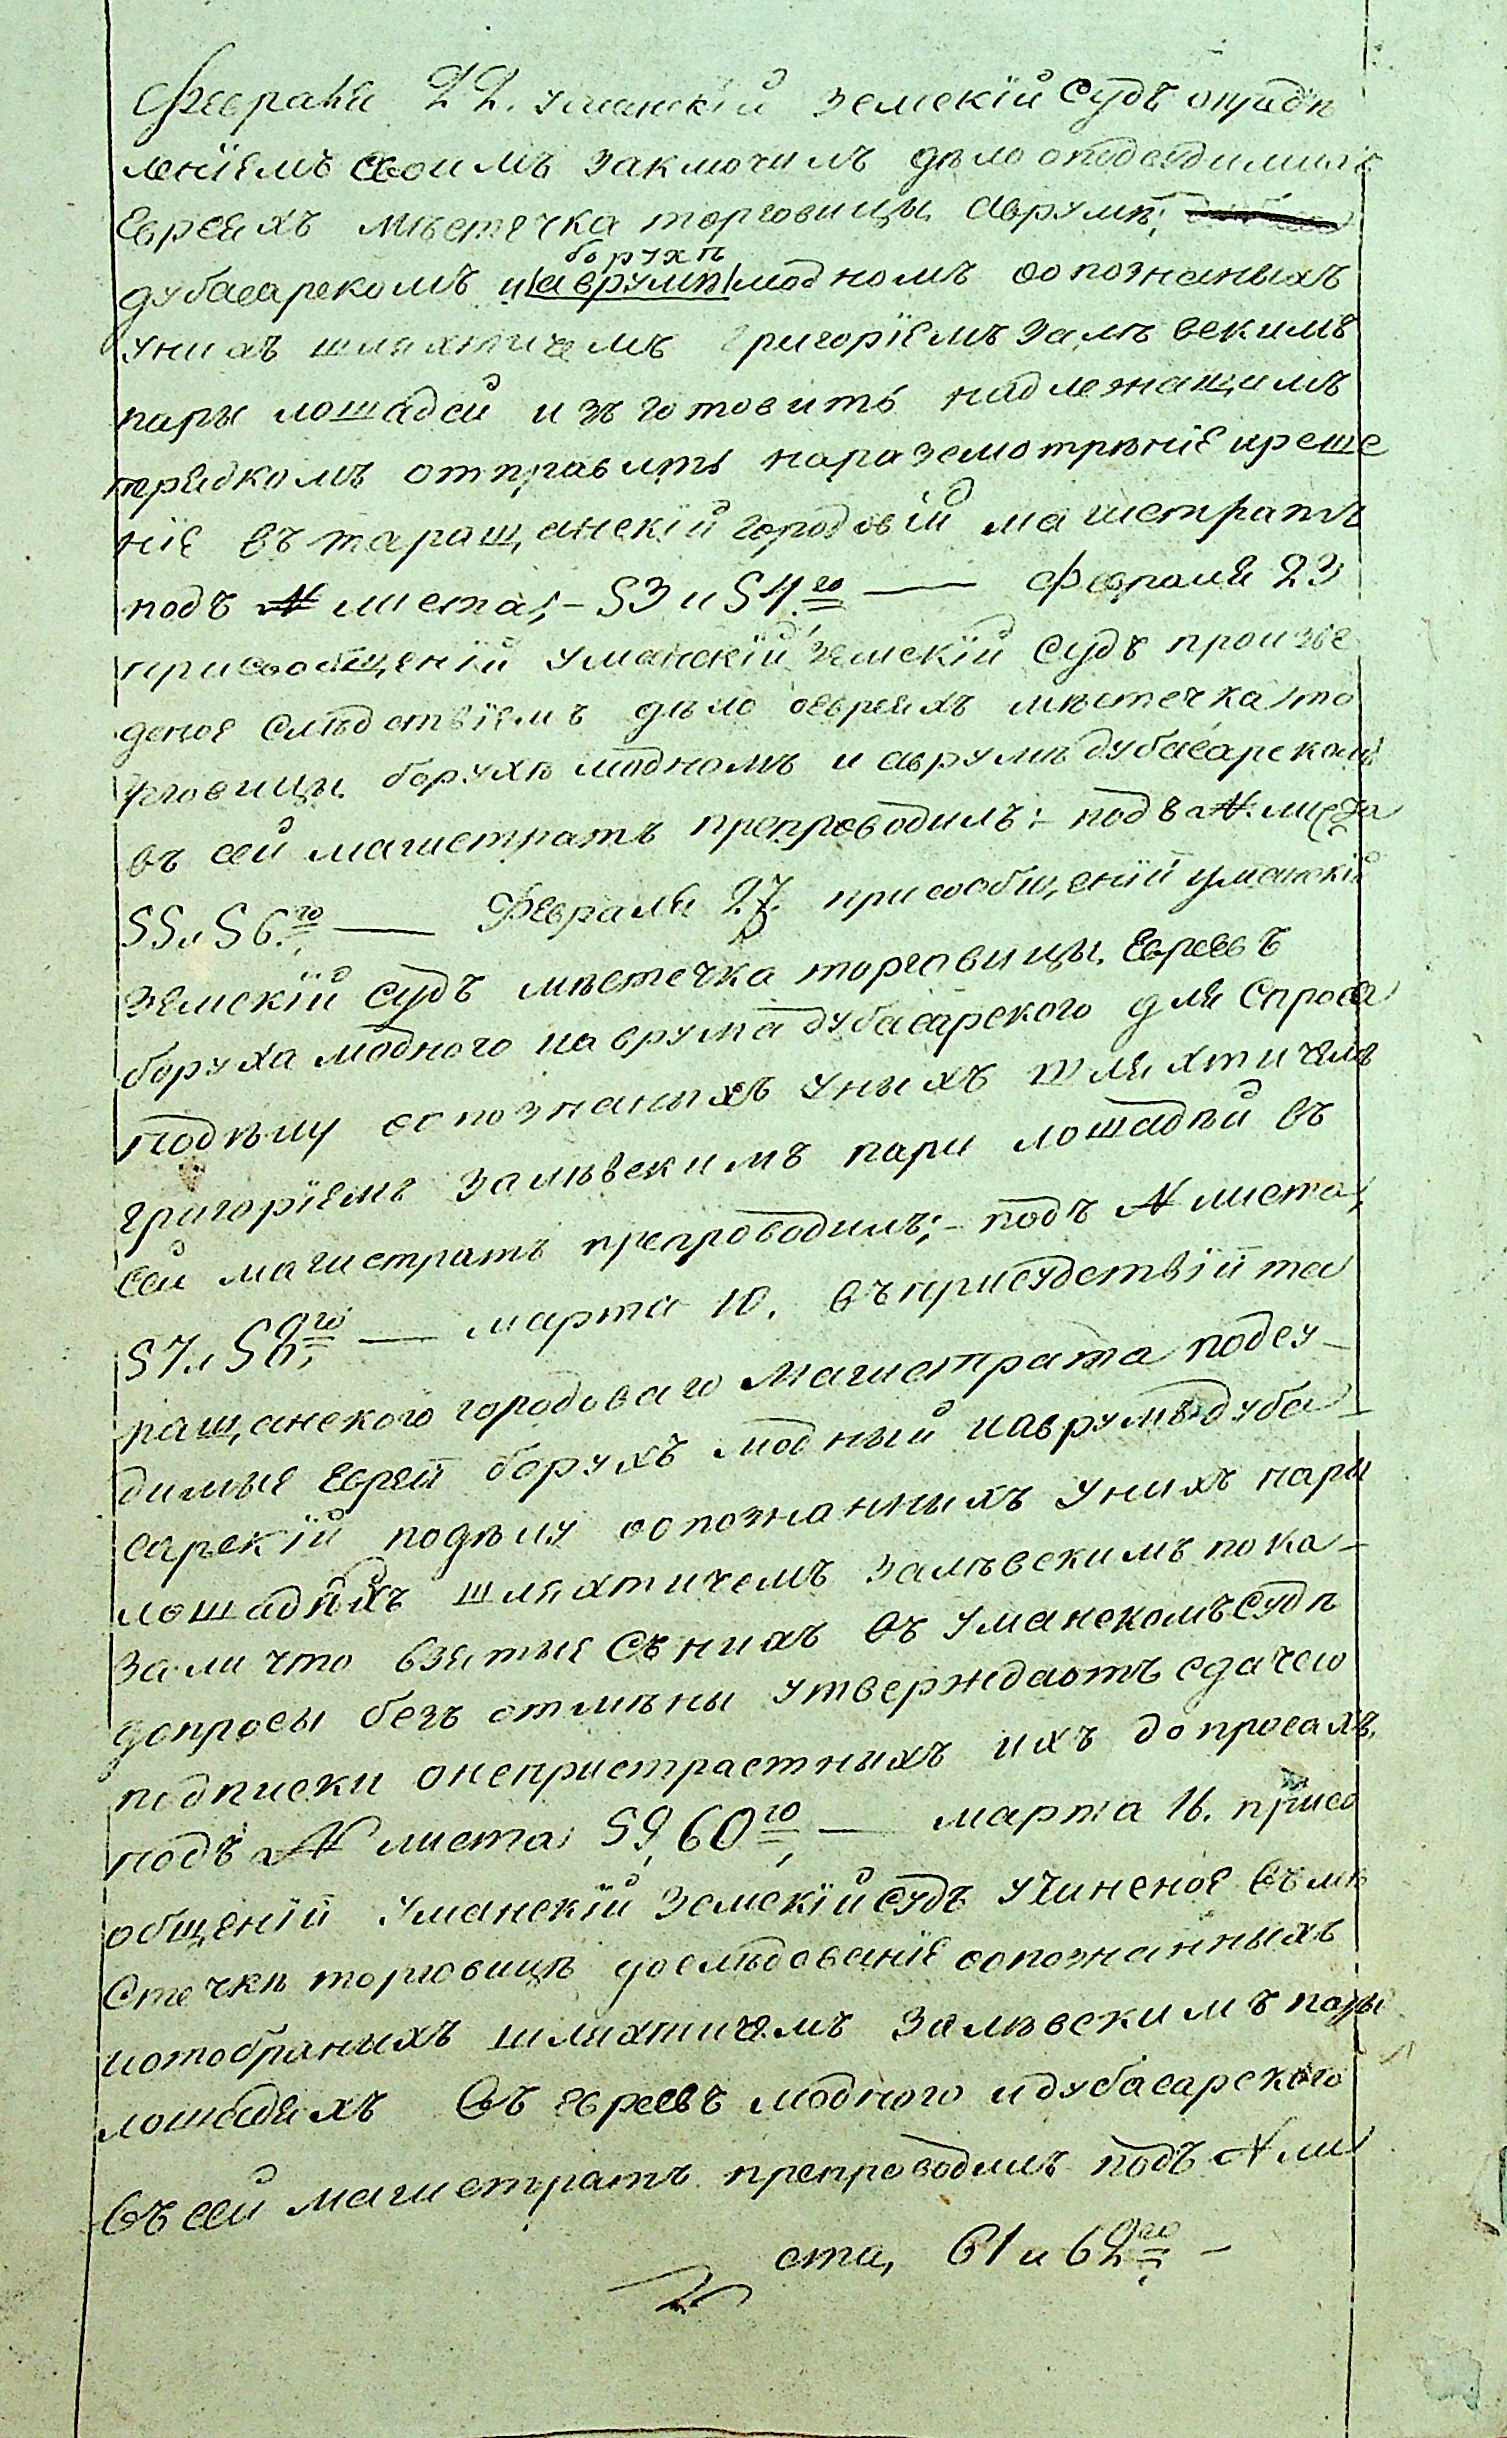 Февраля 22. Уманскій Земскій Судъ опредѣ
леніемъ своимъ заключилъ дѣло оподсудимихъ
Евреяхъ мѣстечка торговицы Аврумѣ;
борухѣ
дубасарскомъ и аврумѣ модномъ оопознаныхъ
унихъ шляхтичемъ Григоріемъ Залѣвскимъ
пары лошадей изъготовить надлежащимъ
порядкомъ отправить наразсмотрѣніе иреше
ніе въ таращанскій городовій магистратъ
подъ № листа; 53 и 54го — Февраля 23
присообщеній Уманскій Земскій Судъ произве
деное слѣдствіемъ дѣло оевреяхъ мѣстечка то
рговици борухѣ модномъ и аврумѣ дубасарскомъ
въ сей магистратъ препроводилъ: подъ № листа
55 и 56го — Февраля 27. присообщеній уманскій
Земскій Судъ мѣстечка торговицы Евреевъ
боруха модного иаврума дубасарского для спроса
подѣлу оопознаныхъ унихъ шляхтичемъ
григоріемъ Залѣвскимъ пари лошадѣй въ
сей магистратъ препроводилъ; подъ № листа,
57 и 58го — марта 10. въприсудствій та
ращанского городоваго магистрата подсу
димые Еврей борухъ модный иаврумъ дуба
сарскій подѣлу оопознанныхъ унихъ пари
лошадѣхъ шляхтичемъ залѣвскимъ пока
зали что взятые съ нихъ въ Уманскомъ Судѣ
допросы безъ отмѣны утверждаютъ сдачею
подписки онепристрастныхъ ихъ допросахъ
подъ № листа 59, 60го, — марта 16. присо
общеній Уманскій Земскій Судъ учиненое въ мѣ
стечкѣ торговицѣ дослѣдованіе оопознанныхъ
иотобраныхъ шляхтичемъ Залѣвскимъ пары
лошадяхъ въ евреевъ модного идубасарского
въ сей магистратъ препроводилъ подъ № ли
ста, 61 и 62го —